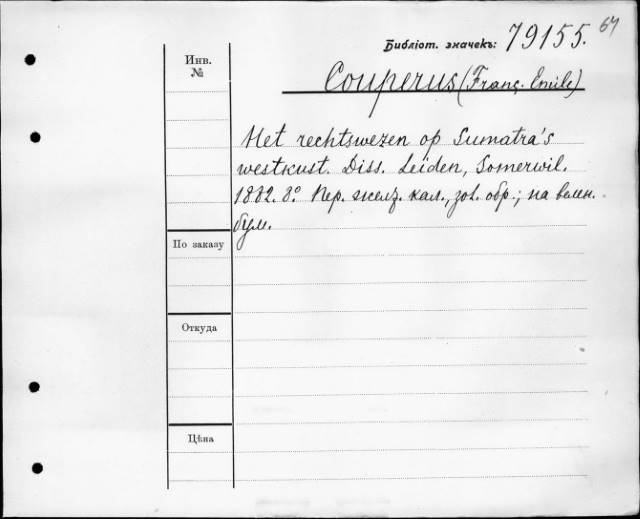 Библіот. значекъ: 79155. 64
Инв. №
Couperus (Franç. Emile)
Het rechtswezen op Sumatra's
westkust. Diss. Leiden, Somerwil.
1882. 8° Пер. желз. кал., зол. обр.; на велен.
бум.
По заказу
Откуда
Цѣна